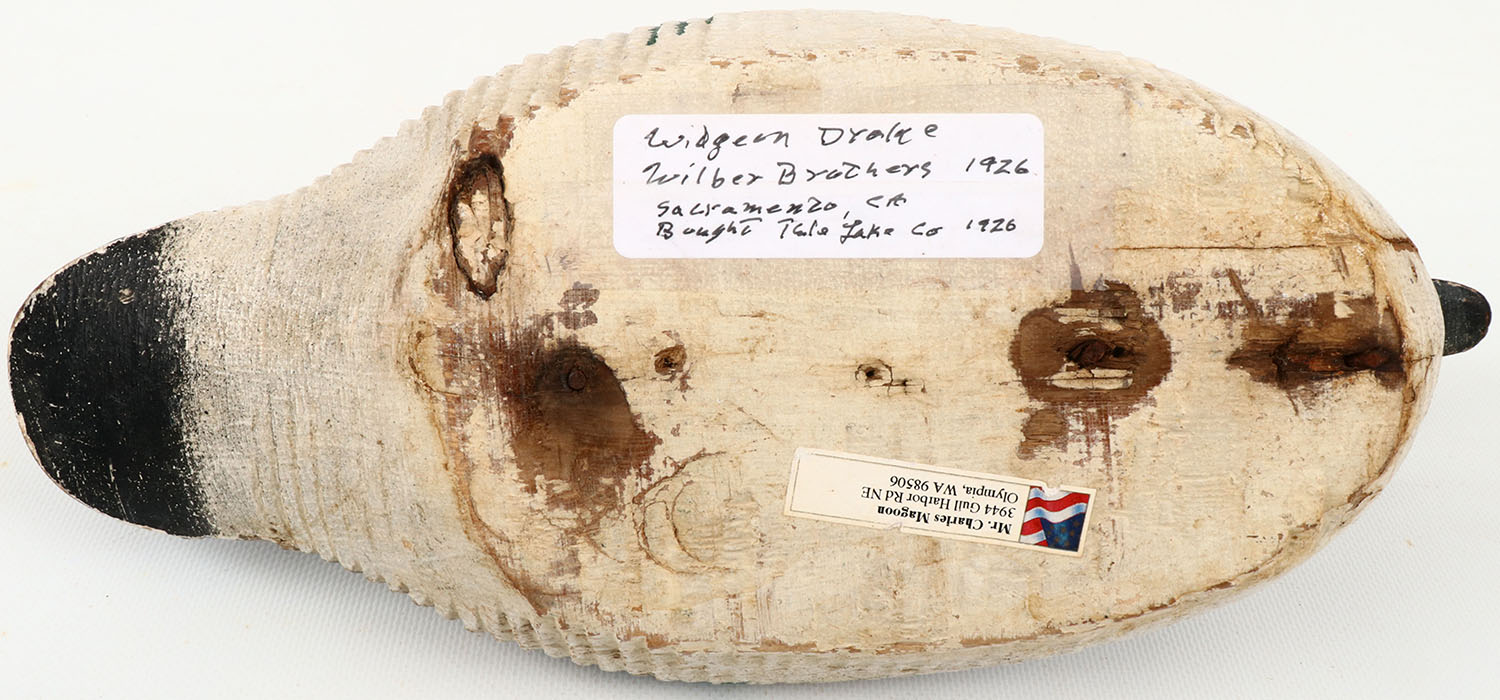 Widgeon Drake
Wilber Brothers 1926
Sacramento, CA
Bought Tule Lake Co 1926
Mr. Charles Magoon
3944 Gull Harbor Rd NE
Olympia, WA 98506